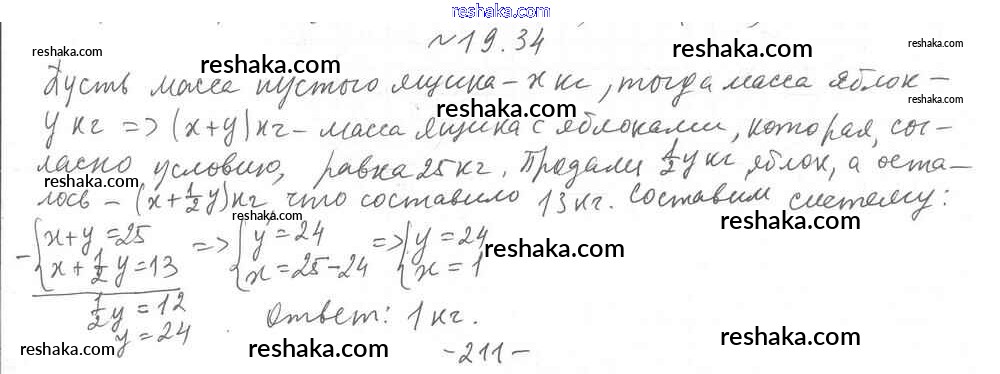 reshaka.com
№19.34
reshaka.com reshaka.com reshaka.com
Пусть масса пустого ящика – x кг, тогда масса яблок –
reshaka.com
y кг => (x+y) кг – масса ящика с яблоками, которая, сог-
reshaka.com reshaka.com
ласно условию, равна 25 кг. Продали 1/2 y кг яблок, а оста-
reshaka.com reshaka.com
лось – (x + 1/2 y) кг что составило 13 кг. Составим систему:
reshaka.com
- { x+y=25 => { y=24 => { y=24
x + 1/2 y = 13 x=25-24 x=1
reshaka.com reshaka.com
1/2 y = 12
Ответ: 1 кг.
y = 24
reshaka.com reshaka.com reshaka.com
-211-